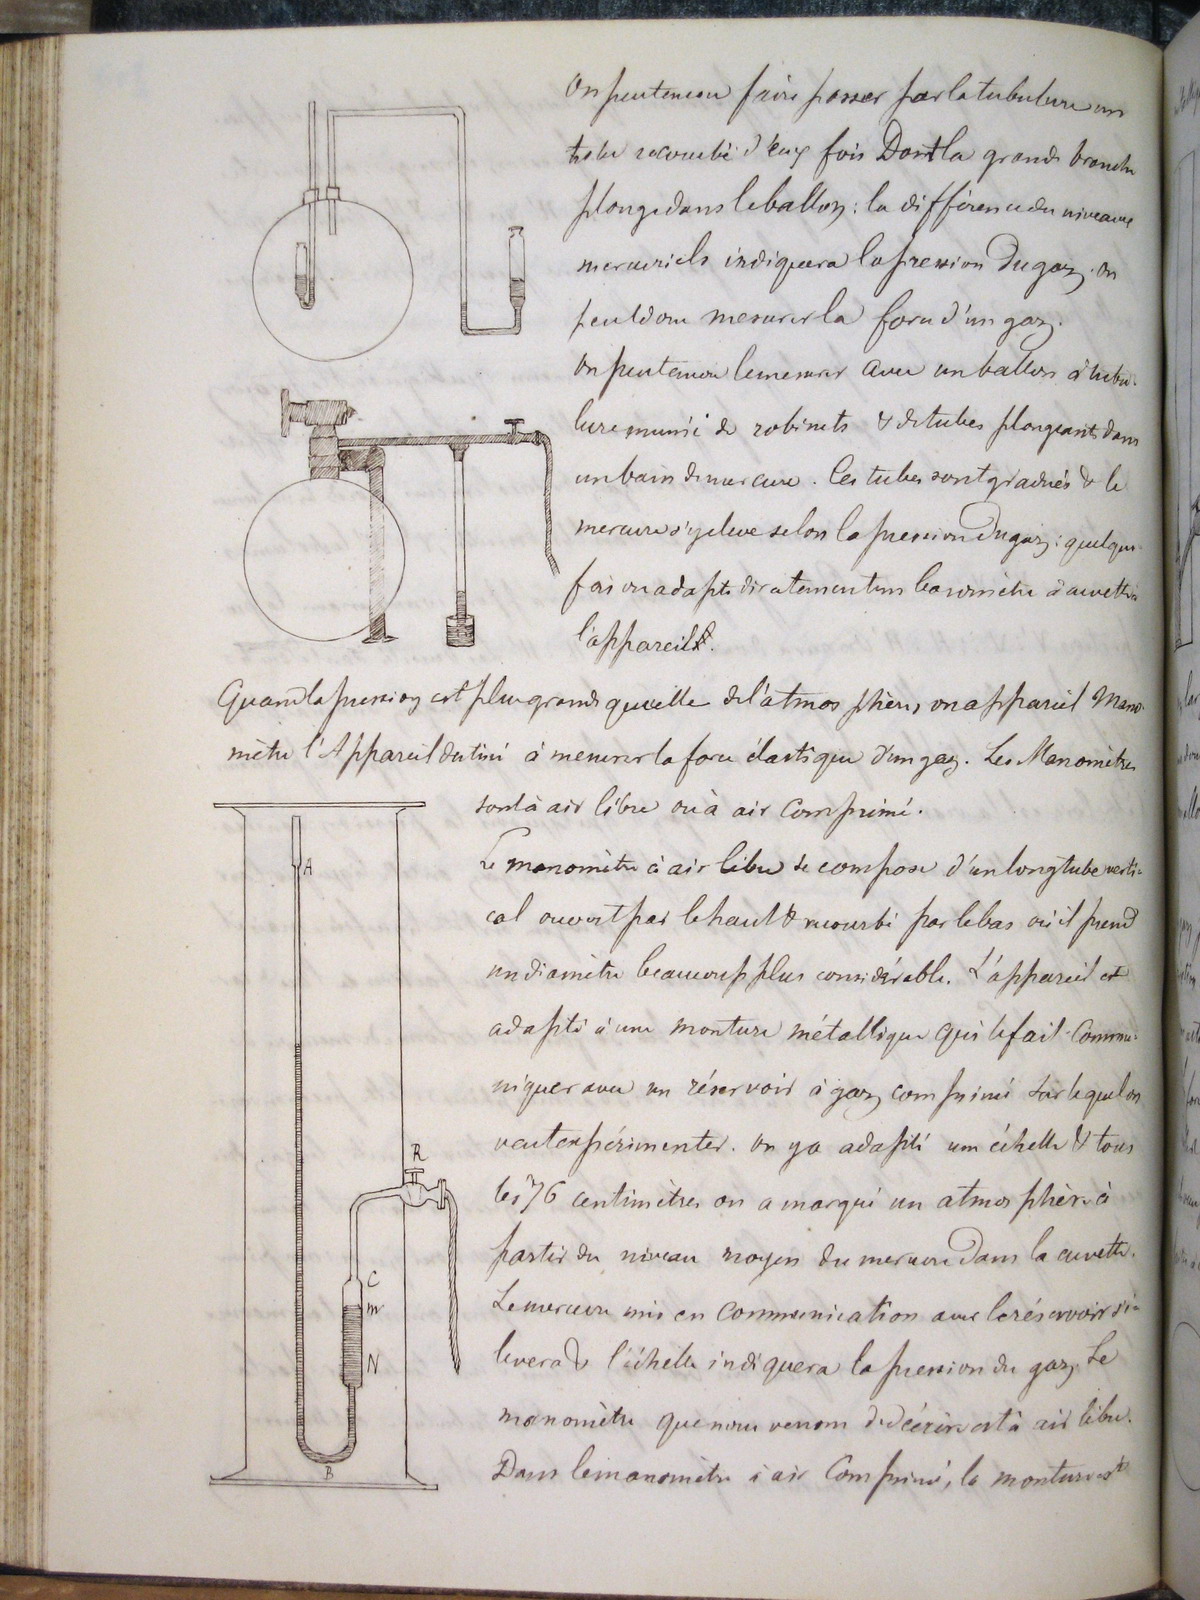 On peut encore faire passer par la tubulure un
tube recourbé deux fois Dont la grande branche
plonge dans le ballon ; la différence du niveaux
mercuriels indiquera la pression du gaz. on
peut donc mesurer la force d'un gaz.
On peut encore le mesurer avec un ballon à tubu-
lure muni de robinets & de tubes plongeants dans
un bain de mercure. Ces tubes sont gradués & le
mercure s'y élève selon la pression du gaz ; quelque-
fois on adapte directement un baromètre à cuvette à
l'appareil.
Quand la pression est plus grande que celle de l'atmosphère, on appareil Mano-
mètre l'Appareil destiné à mesurer la force élastique d'un gaz. Les Manomètres
sont à air libre ou à air comprimé.
A
Le manomètre à air libre se compose d'un long tube verti-
cal ouvert par le haut & recourbé par le bas où il prend
un diamètre beaucoup plus considérable. L'appareil est
adapté à une monture métallique qui le fait Commu-
niquer avec un réservoir à gaz comprimé sur lequel on
veut expérimenter. On y a adapté une échelle & tous
R
les 76 centimètres on a marqué un atmosphère à
partir du niveau moyen du mercure Dans la cuvette.
C
m
Le mercure mis en communication avec le réservoir s'é-
levera & l'échelle indiquera la pression du gaz. Le
N
manomètre que nous venons de décrire est à air libre.
B
Dans le manomètre à air Comprimé, la monture est